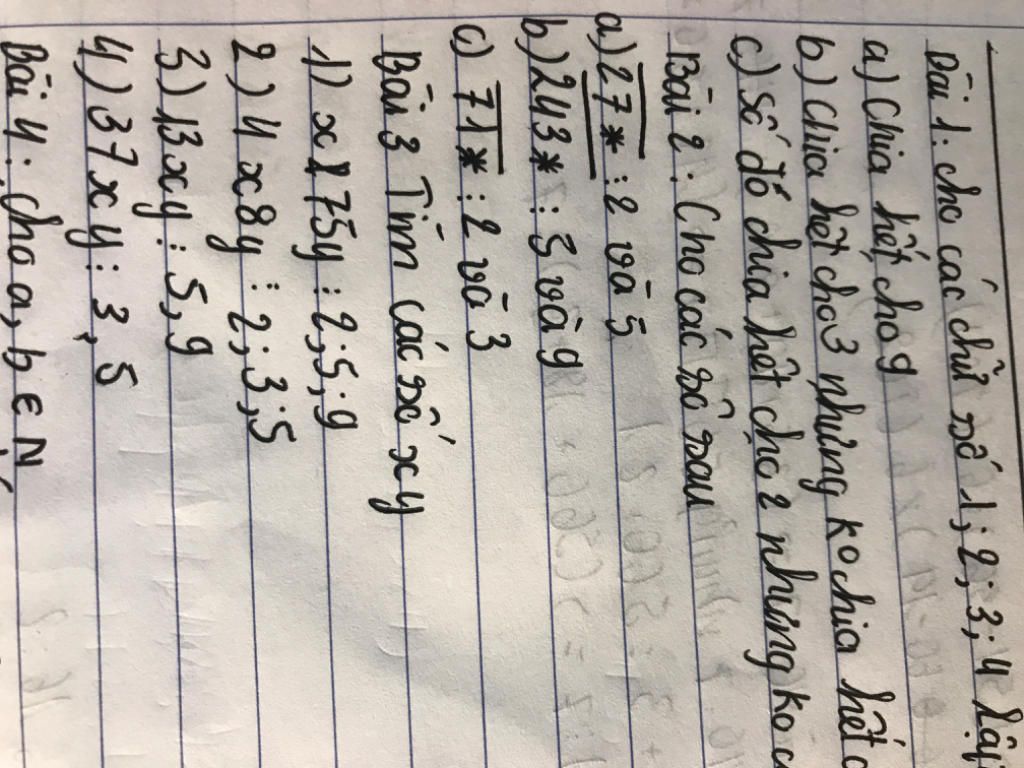 Bài 1: cho các chữ số 1; 2; 3; 4 lập
a) chia hết cho 9
b) chia hết cho 3 nhưng ko chia hết c
c) số đó chia hết cho 2 nhưng ko c
Bài 2: Cho các số sau
a) 27* ⋮ 2 và 5
b) 243* ⋮ 5 và 9
c) 71* ⋮ 2 và 3
Bài 3 Tìm các số xy
1) x175y ⋮ 2; 5; 9
2) 4x8y ⋮ 2; 3; 5
3) 13xy ⋮ 5, 9
4) 37xy ⋮ 3, 5
Bài 4: cho a, b ∈ N